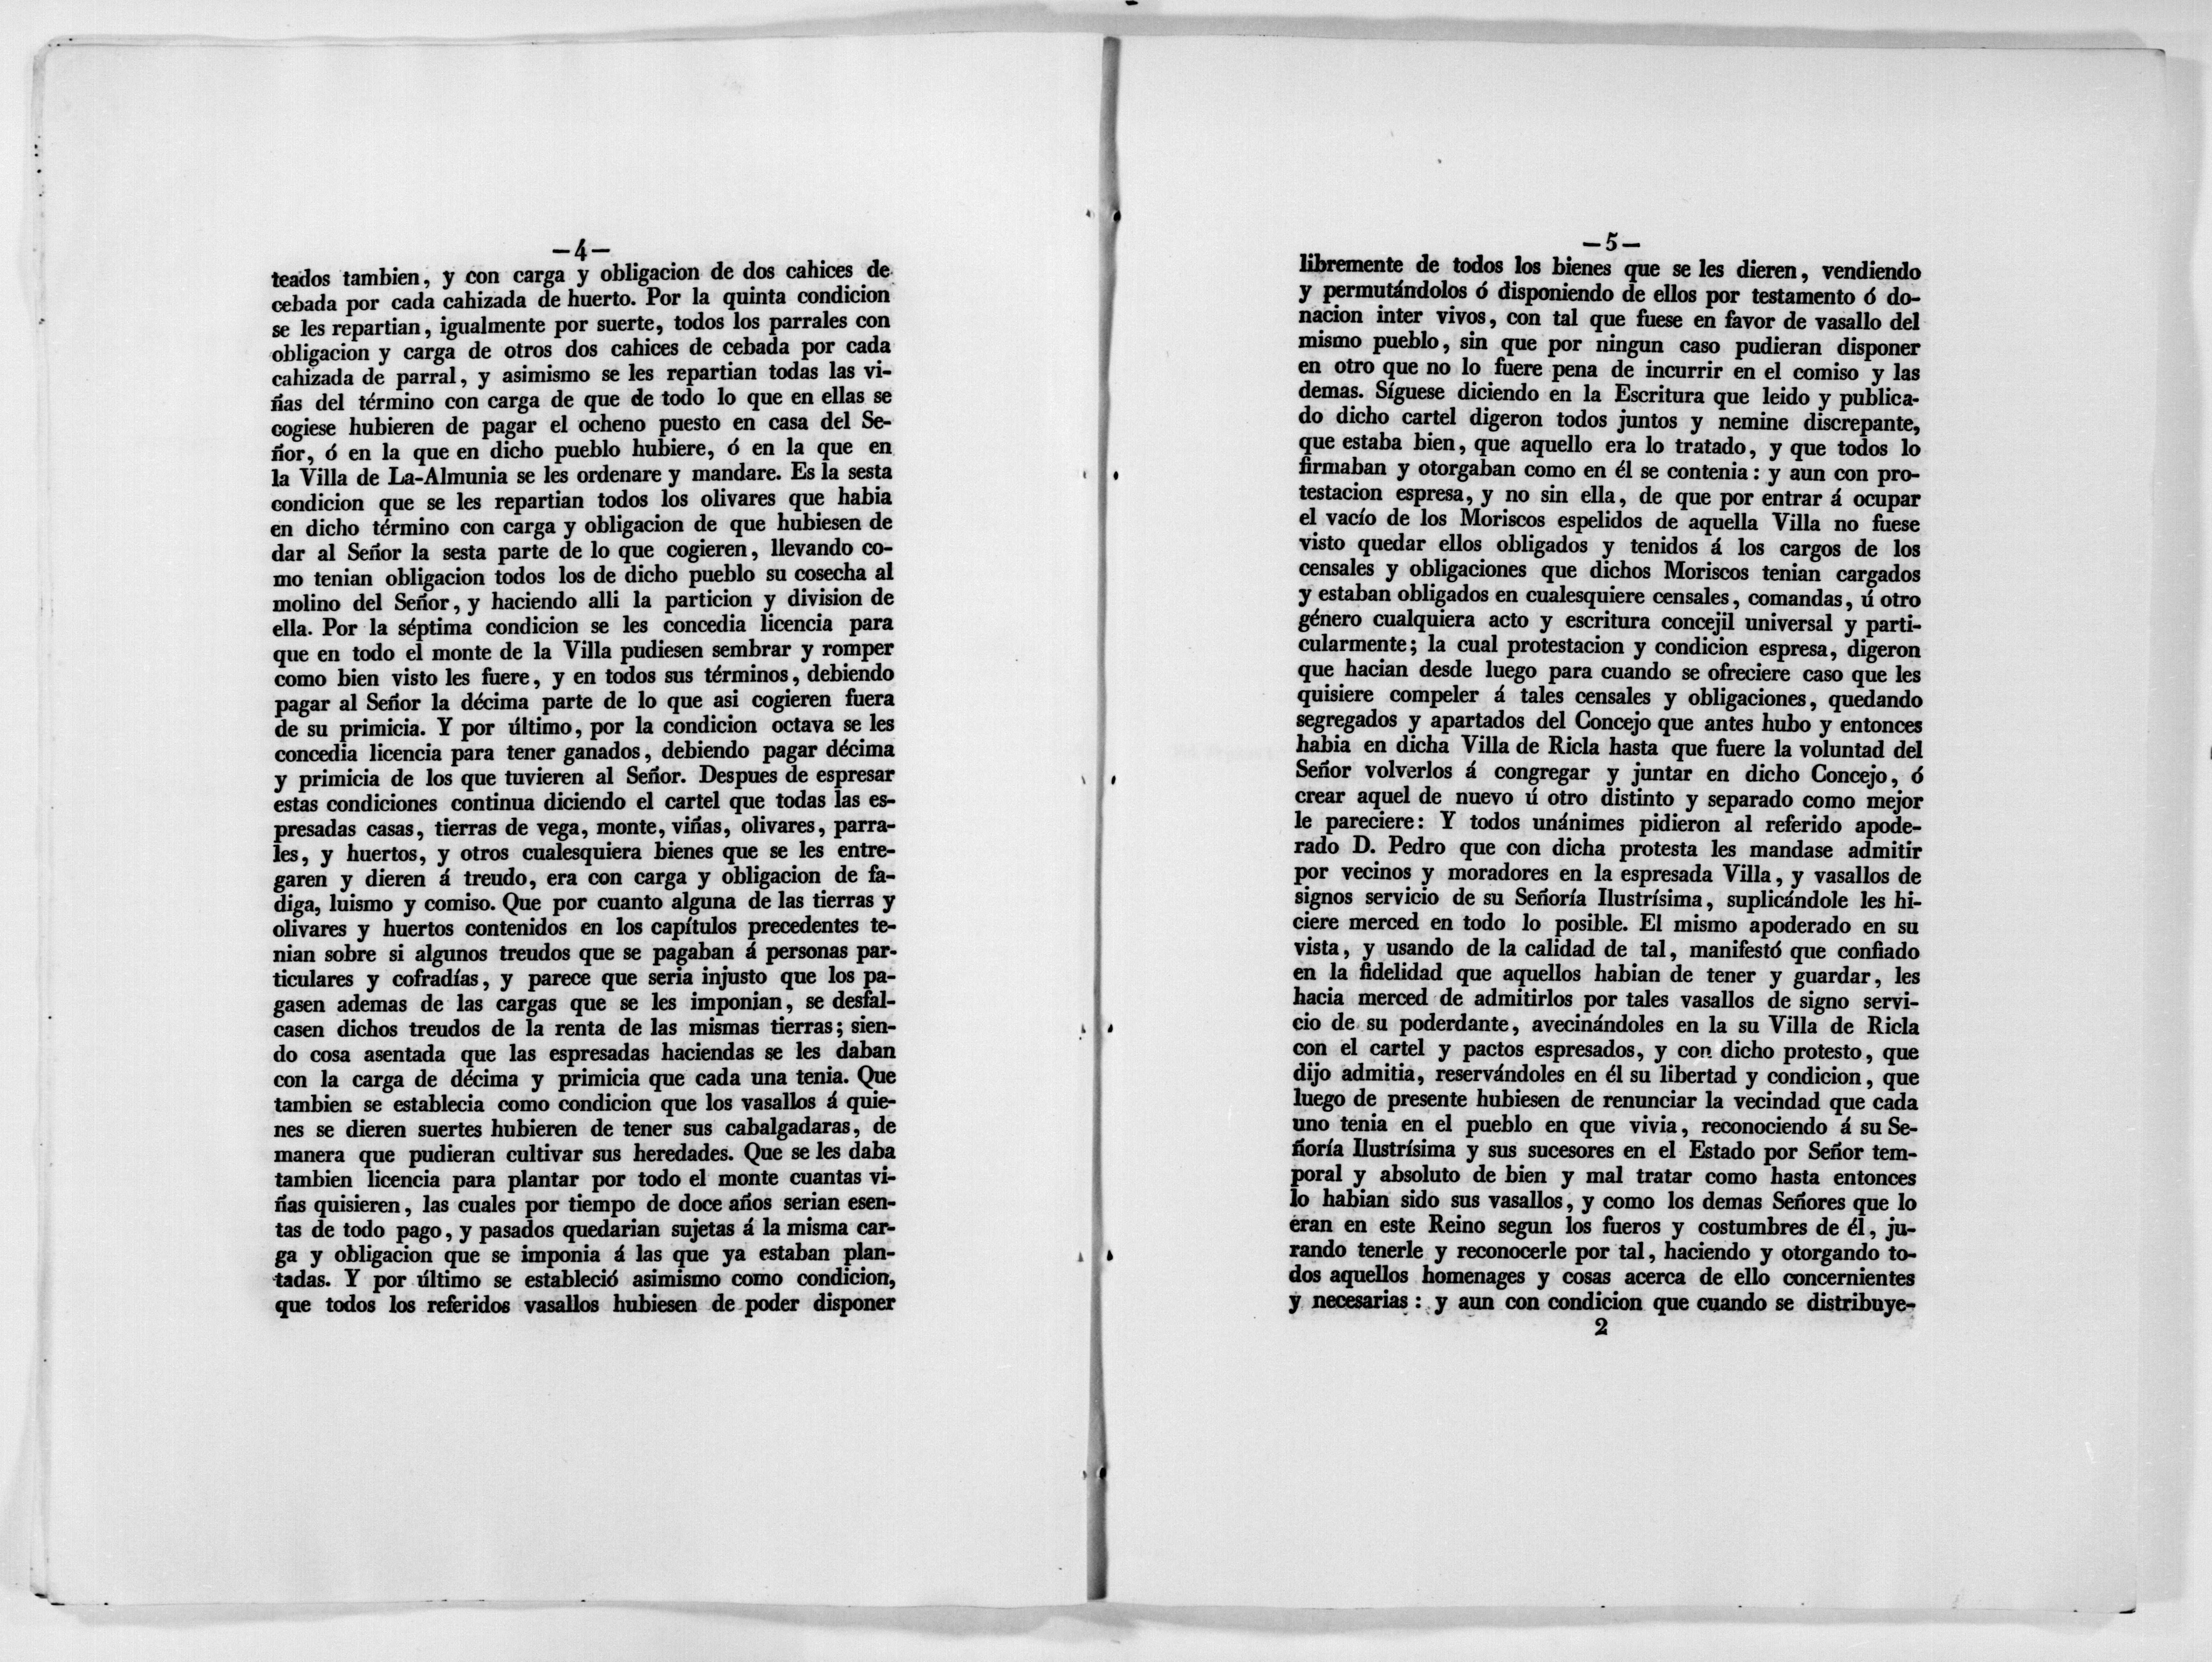 —4—
teados tambien, y con carga y obligacion de dos cahices de
cebada por cada cahizada de huerto. Por la quinta condicion
se les repartian, igualmente por suerte, todos los parrales con
obligacion y carga de otros dos cahices de cebada por cada
cahizada de parral, y asimismo se les repartian todas las vi-
ñas del término con carga de que de todo lo que en ellas se
cogiese hubieren de pagar el ocheno puesto en casa del Se-
ñor, ó en la que en dicho pueblo hubiere, ó en la que en
la Villa de La-Almunia se les ordenare y mandare. Es la sesta
condicion que se les repartian todos los olivares que habia
en dicho término con carga y obligacion de que hubiesen de
dar al Señor la sesta parte de lo que cogieren, llevando co-
mo tenian obligacion todos los de dicho pueblo su cosecha al
molino del Señor, y haciendo alli la particion y division de
ella. Por la séptima condicion se les concedia licencia para
que en todo el monte de la Villa pudiesen sembrar y romper
como bien visto les fuere, y en todos sus términos, debiendo
pagar al Señor la décima parte de lo que asi cogieren fuera
de su primicia. Y por último, por la condicion octava se les
concedia licencia para tener ganados, debiendo pagar décima
y primicia de los que tuvieren al Señor. Despues de espresar
estas condiciones continua diciendo el cartel que todas las es-
presadas casas, tierras de vega, monte, viñas, olivares, parra-
les, y huertos, y otros cualesquiera bienes que se les entre-
garen y dieren á treudo, era con carga y obligacion de fa-
diga, luismo y comiso. Que por cuanto alguna de las tierras y
olivares y huertos contenidos en los capítulos precedentes te-
nian sobre si algunos treudos que se pagaban á personas par-
ticulares y cofradías, y parece que seria injusto que los pa-
gasen ademas de las cargas que se les imponian, se desfal-
casen dichos treudos de la renta de las mismas tierras; sien-
do cosa asentada que las espresadas haciendas se les daban
con la carga de décima y primicia que cada una tenia. Que
tambien se establecia como condicion que los vasallos á quie-
nes se dieren suertes hubieren de tener sus cabalgadaras, de
manera que pudieran cultivar sus heredades. Que se les daba
tambien licencia para plantar por todo el monte cuantas vi-
ñas quisieren, las cuales por tiempo de doce años serian esen-
tas de todo pago, y pasados quedarian sujetas á la misma car-
ga y obligacion que se imponia á las que ya estaban plan-
tadas. Y por último se estableció asimismo como condicion,
que todos los referidos vasallos hubiesen de poder disponer
—5—
libremente de todos los bienes que se les dieren, vendiendo
y permutándolos ó disponiendo de ellos por testamento ó do-
nacion inter vivos, con tal que fuese en favor de vasallo del
mismo pueblo, sin que por ningun caso pudieran disponer
en otro que no lo fuere pena de incurrir en el comiso y las
demas. Síguese diciendo en la Escritura que leido y publica-
do dicho cartel digeron todos juntos y nemine discrepante,
que estaba bien, que aquello era lo tratado, y que todos lo
firmaban y otorgaban como en él se contenia: y aun con pro-
testacion espresa, y no sin ella, de que por entrar á ocupar
el vacío de los Moriscos espelidos de aquella Villa no fuese
visto quedar ellos obligados y tenidos á los cargos de los
censales y obligaciones que dichos Moriscos tenian cargados
y estaban obligados en cualesquiere censales, comandas, ú otro
género cualquiera acto y escritura concejil universal y parti-
cularmente; la cual protestacion y condicion espresa, digeron
que hacian desde luego para cuando se ofreciere caso que les
quisiere compeler á tales censales y obligaciones, quedando
segregados y apartados del Concejo que antes hubo y entonces
habia en dicha Villa de Ricla hasta que fuere la voluntad del
Señor volverlos á congregar y juntar en dicho Concejo, ó
crear aquel de nuevo ú otro distinto y separado como mejor
le pareciere: Y todos unánimes pidieron al referido apode-
rado D. Pedro que con dicha protesta les mandase admitir
por vecinos y moradores en la espresada Villa, y vasallos de
signos servicio de su Señoría Ilustrísima, suplicándole les hi-
ciere merced en todo lo posible. El mismo apoderado en su
vista, y usando de la calidad de tal, manifestó que confiado
en la fidelidad que aquellos habian de tener y guardar, les
hacia merced de admitirlos por tales vasallos de signo servi-
cio de su poderdante, avecinándoles en la su Villa de Ricla
con el cartel y pactos espresados, y con dicho protesto, que
dijo admitia, reservándoles en él su libertad y condicion, que
luego de presente hubiesen de renunciar la vecindad que cada
uno tenia en el pueblo en que vivia, reconociendo á su Se-
ñoría Ilustrísima y sus sucesores en el Estado por Señor tem-
poral y absoluto de bien y mal tratar como hasta entonces
lo habian sido sus vasallos, y como los demas Señores que lo
eran en este Reino segun los fueros y costumbres de él, ju-
rando tenerle y reconocerle por tal, haciendo y otorgando to-
dos aquellos homenages y cosas acerca de ello concernientes
y necesarias: y aun con condicion que cuando se distribuye-
2